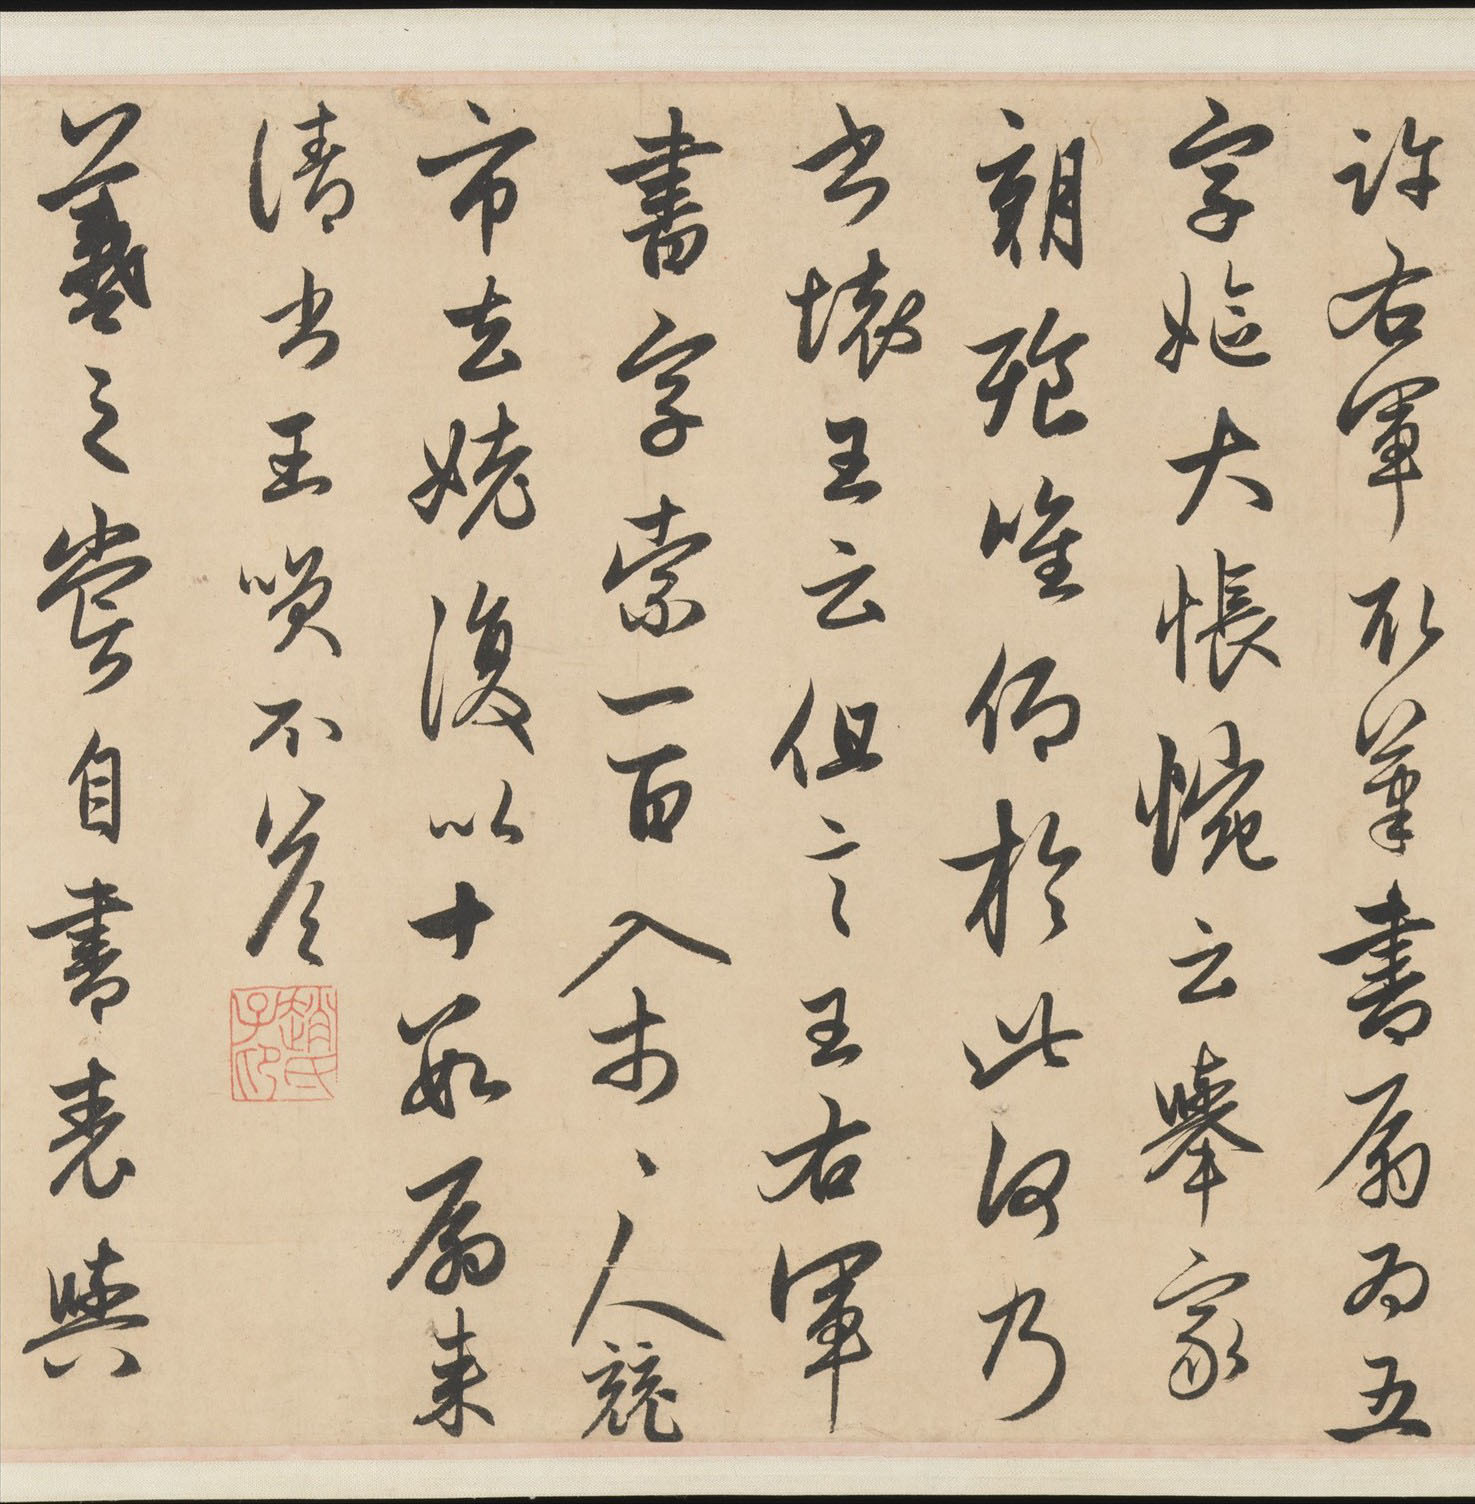 許右軍取筆書扇為五
字嫗大悵惋云舉家
朝飡唯仰於此何乃
書壞王云但言王右軍
書字索一百入市市人競
市去姥復以十數扇來
請書王笑不答
羲之嘗自書表與
趙氏子印